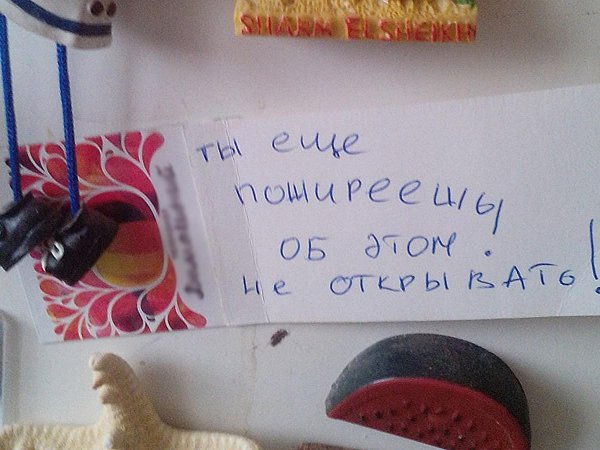 SHARM EL SHEIKH
ты еще
пожиреешь
об этом.
не открывать!